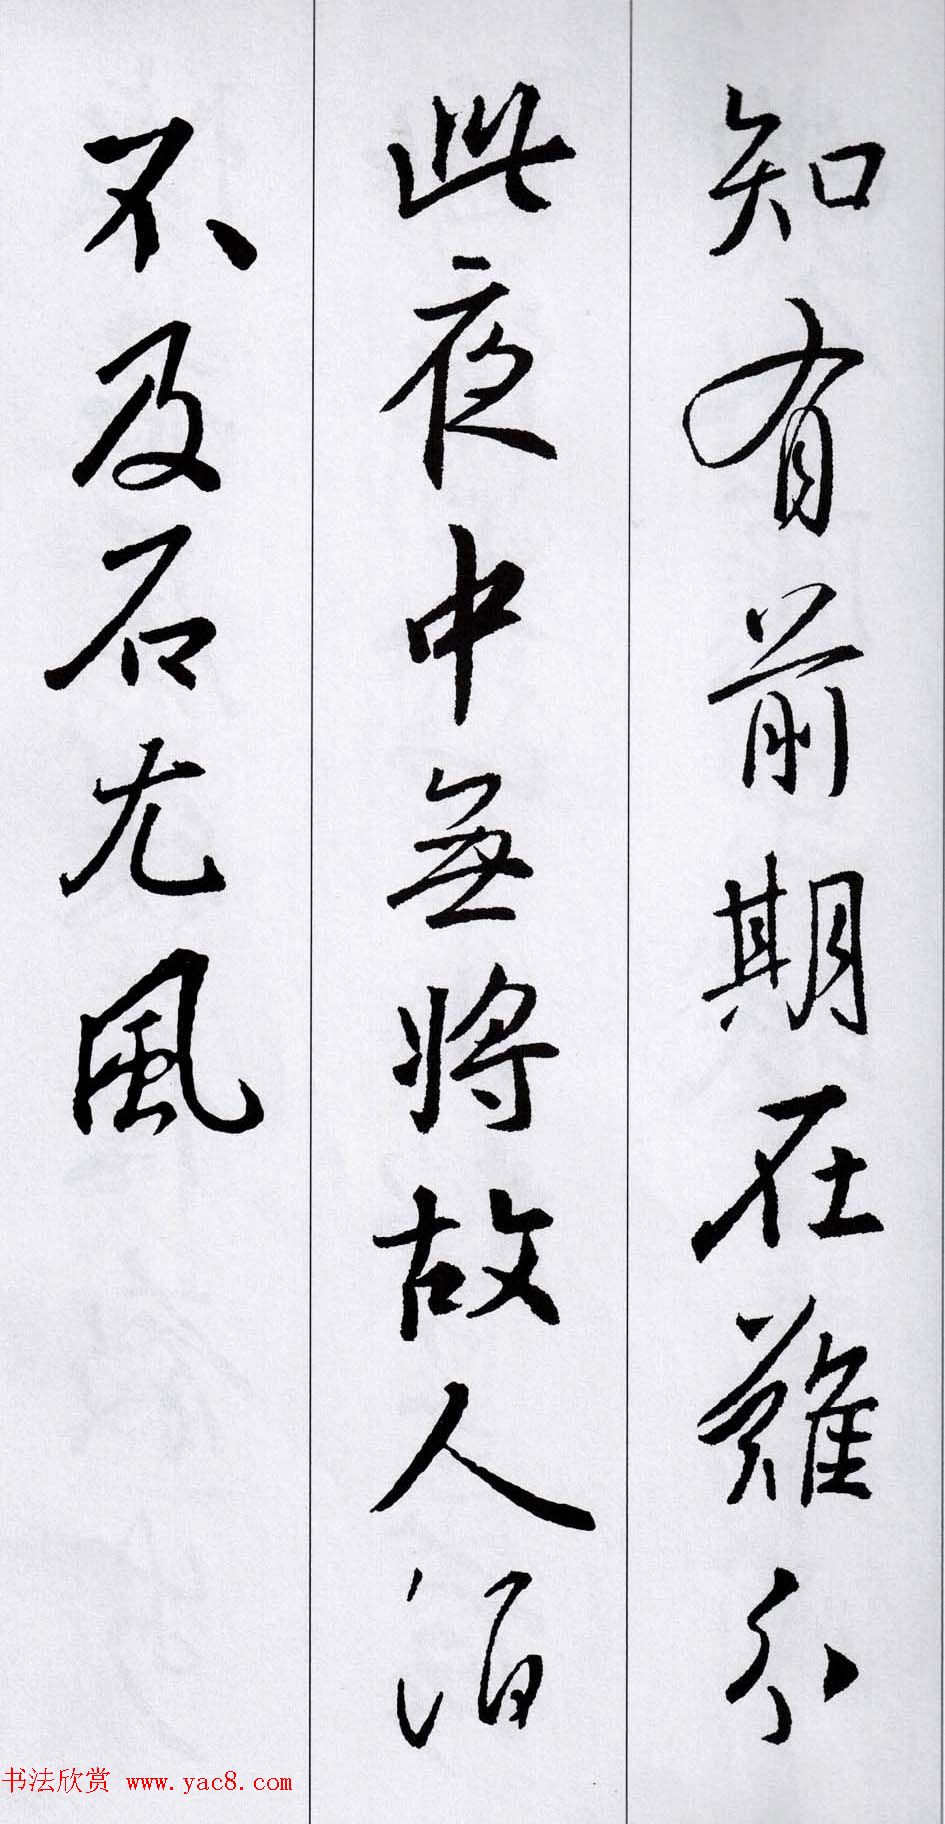 知有前期在難分
此夜中無將故人酒
不及石尤風
书法欣赏 www.yac8.com